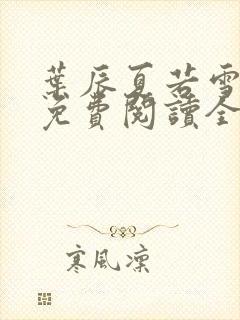 葉辰夏若雪
免費閱讀全
寒風凜